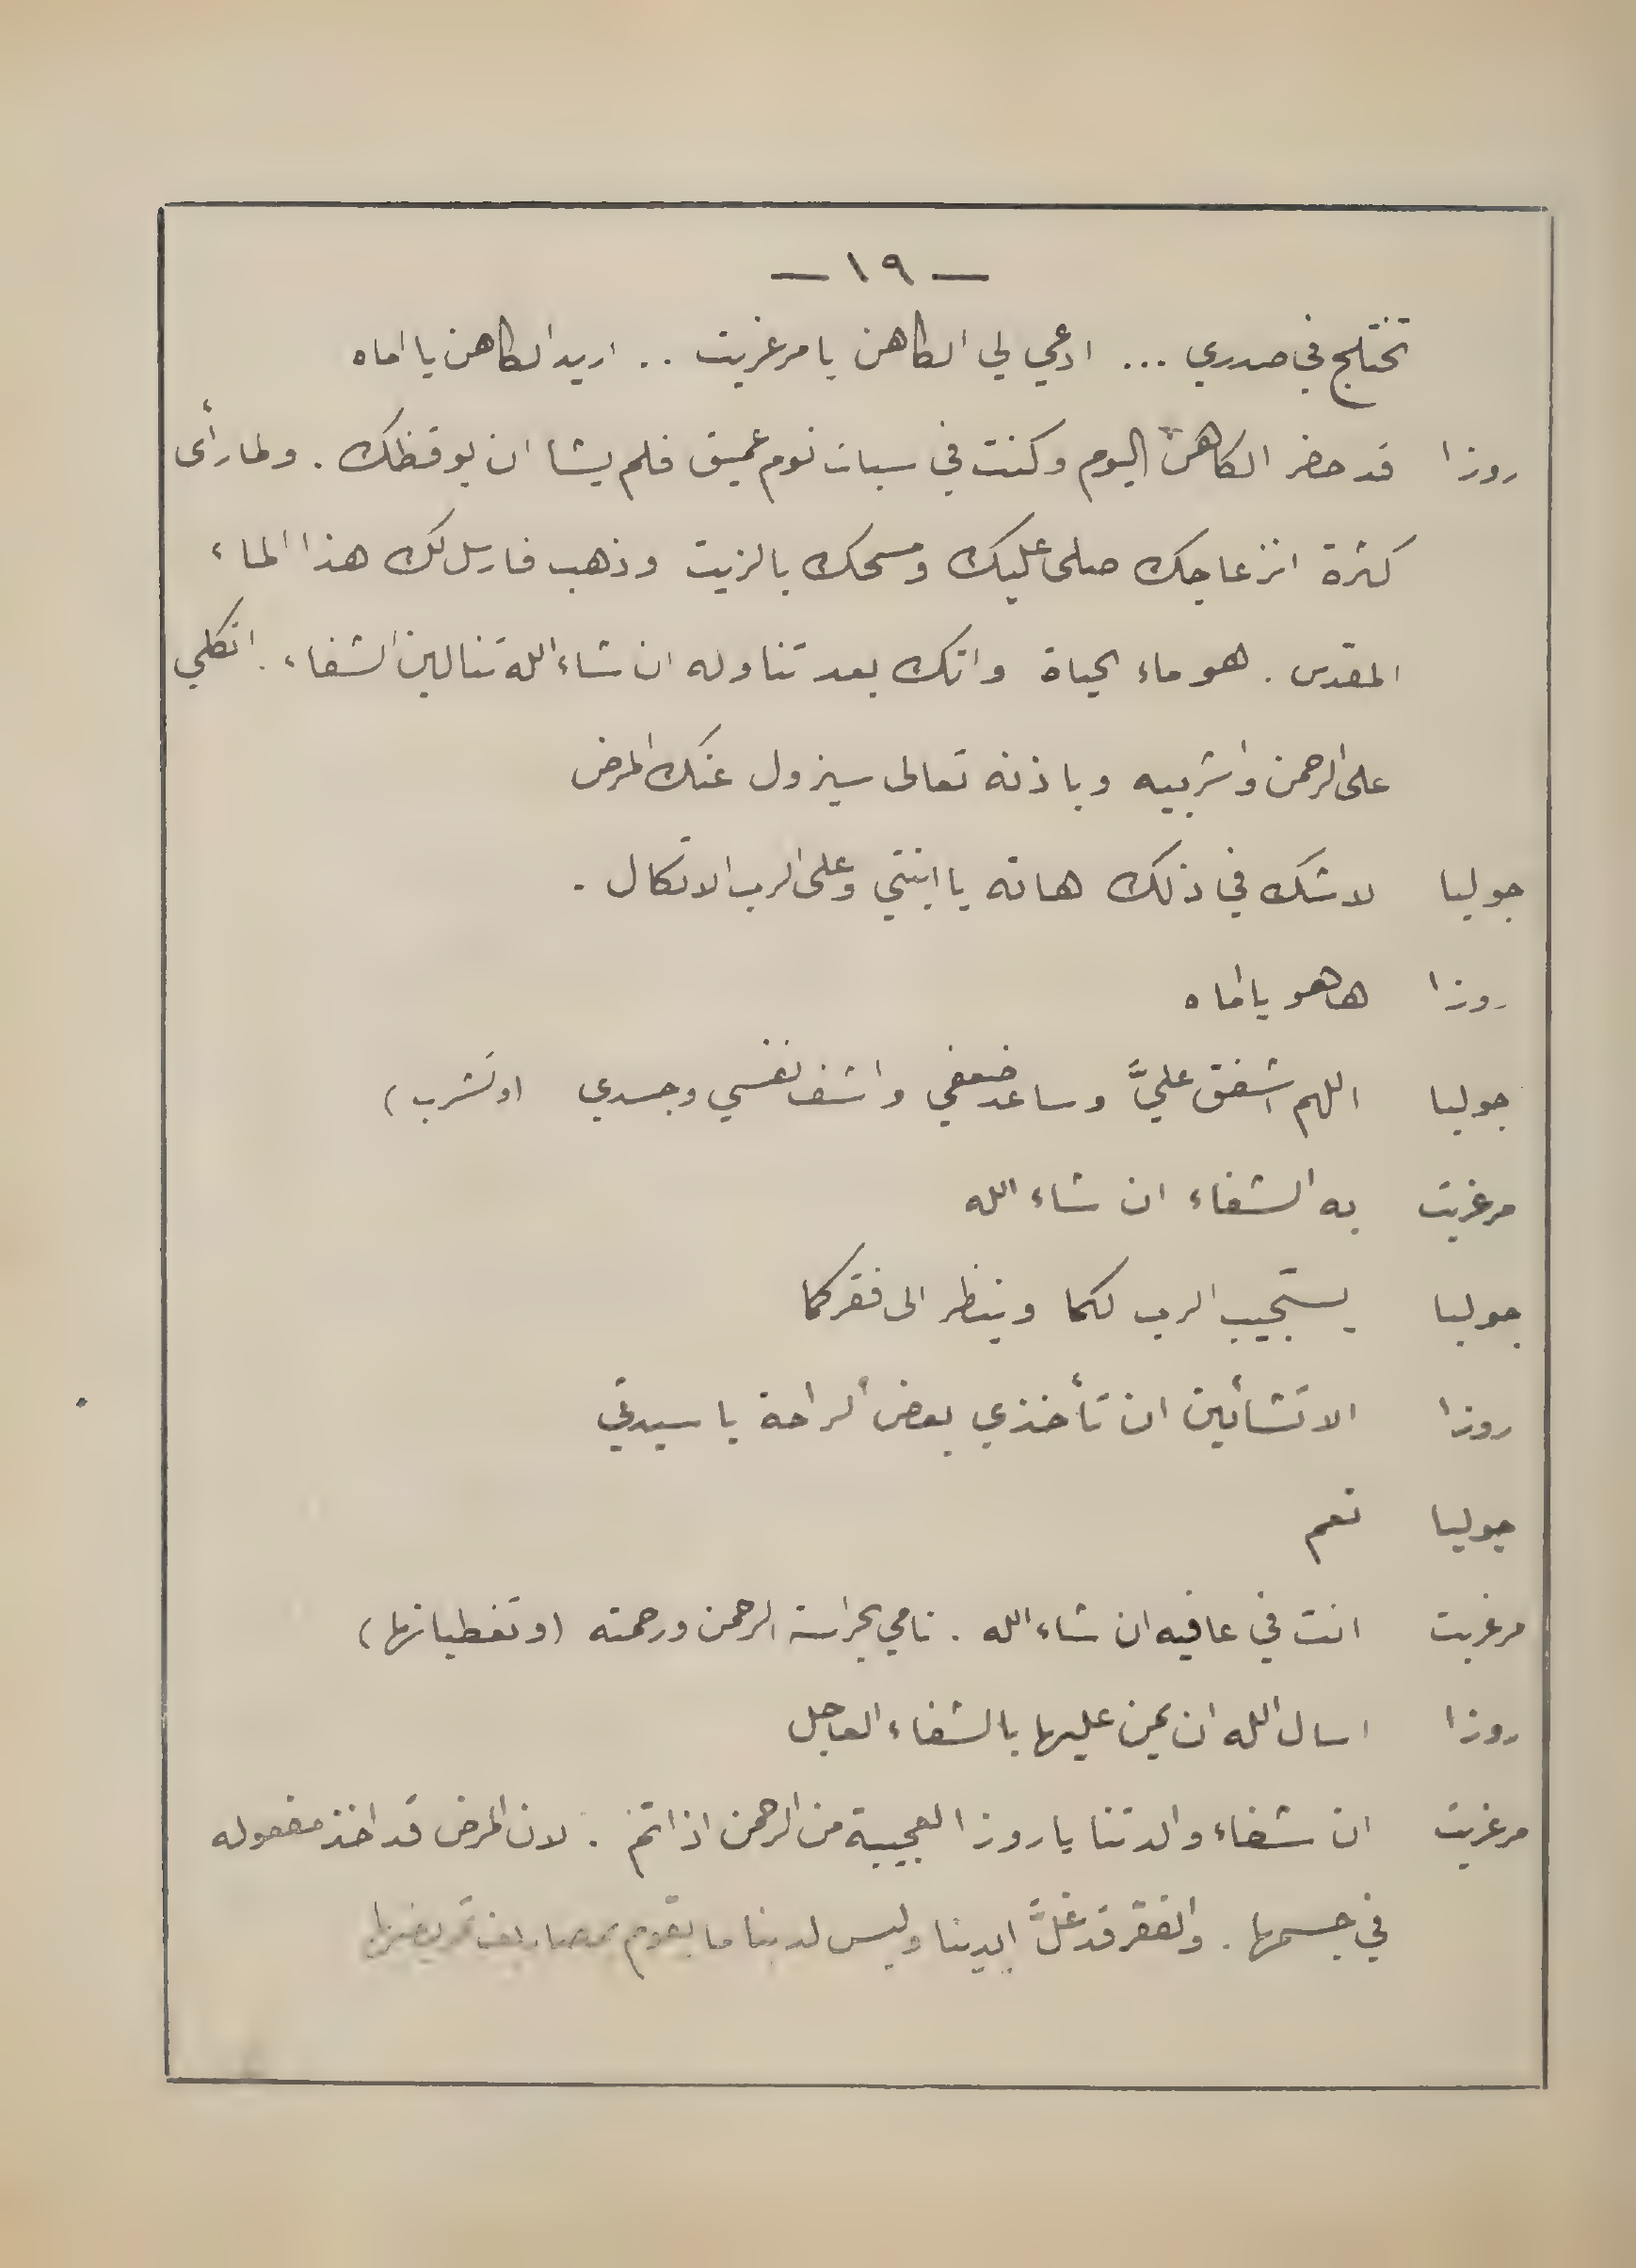 — ١٩ —
تختلج في صدري ... ادعي لي الكاهن يا مرغريت .. اريد الكاهن يا اماه
روزا قد حضر الكاهن اليوم وكنت في سبات نوم عميق فلم يشا ان يوقظك . ولما رأى
كثرة انزعاجك صلى عليك ومسحك بالزيت وذهب فارسل لك هذا الماء
المقدس . هو ماء الحياة وانك بعد تناوله ان شاء الله تنالين الشفاء . اتكلي
على الرحمن واشربيه وباذنه تعالى سيزول عنك المرض
جوليا لا شك في ذلك هاته يا ابنتي وعلى الرب الاتكال .
روزا ها هو يا اماه
جوليا اللهم اشفق عليَّ وساعد ضعفي واشف نفسي وجسدي (وتشرب)
مرغريت به الشفاء ان شاء الله
جوليا يستجيب الرب لكما وينظر الى فقركما
روزا الا تشأين ان تأخذي بعض الراحة يا سيدتي
جوليا نعم
مرغريت انت في عافيه ان شاء الله . نامي بحراسة الرحمن ورحمته (وتغطيانها)
روزا اسال الله ان يمن عليها بالشفاء العاجل
مرغريت ان شفاء والدتنا يا روزا لعجيبة من الرحمن اذا تم . لان المرض قد اخذ مفعوله
في جسمها . والفقر قد غلَّ ايدينا وليس لدينا ما يقوم بمصاريف تمريضها